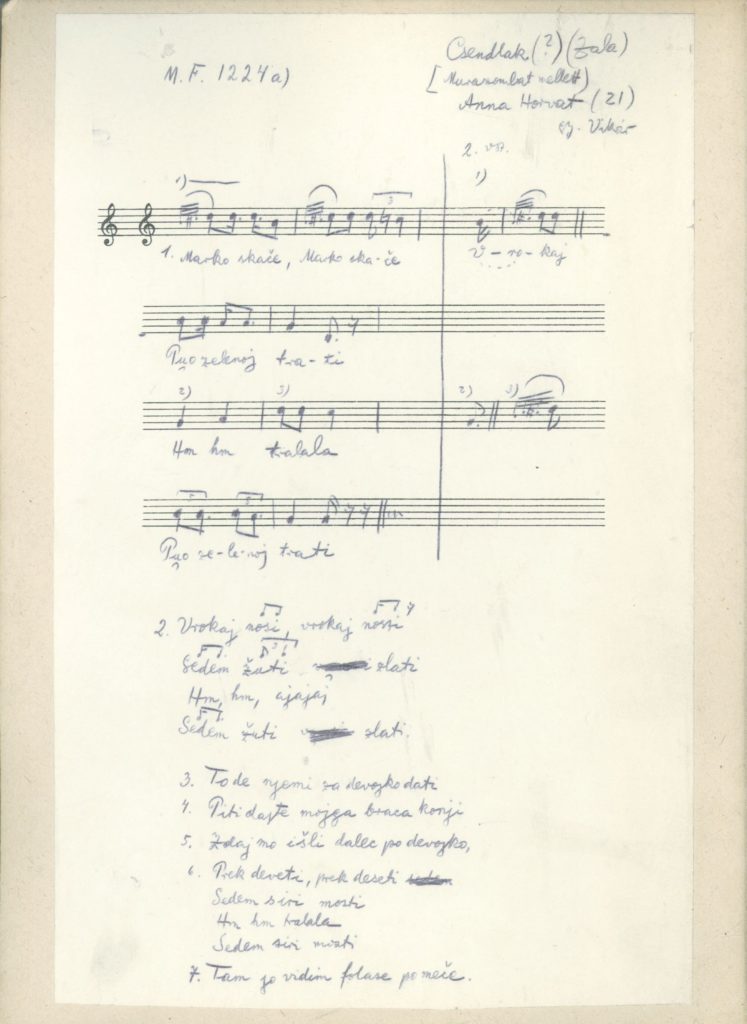 M. F. 1224a)
Csendlak (?) (Zala)
[Muraszombat mellett)
Anna Horvat (21)
gy. Vikár
2. vsz.
1)
1)
3
1. Marko skače, Marko ska-če
V-ro-kaj
Puo zelenoj tra-ti
2) 3)
2) 3)
Hm hm tralala
Puo ze-le-noj trati
2. Vrokaj nosi, vrokaj nossi
3
Sedem žuti zlati
Hm, hm, ajajaj
Sedem žuti zlati.
3. To de njemi za devojko dati
4. Piti dajte mojga braca konji
5. Zdaj mo išli dalec po devojko,
6. Prek deveti, prek deseti
Sedem siri mosti
Hm hm tralala
Sedem siri mosti
7. Tam jo vidim folase po meče.